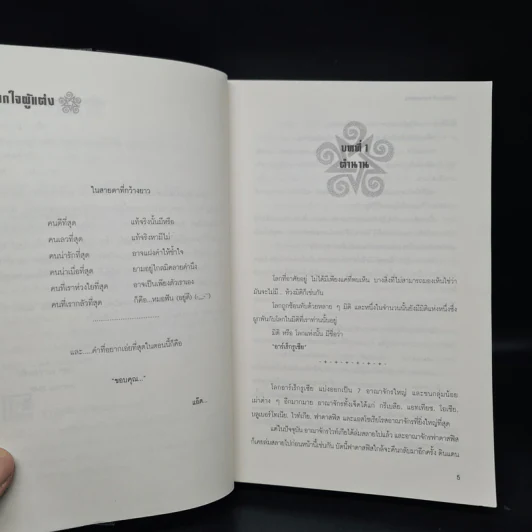 กใจผู้แต่ง
ในสายตาที่กว้างยาว
คนดีที่สุด แท้จริงนั้นมีหรือ
คนเลวที่สุด แท้จริงหามีไม่
คนน่ารักที่สุด อาจแบ่งคำให้ช้ำใจ
คนน่าเบื่อที่สุด ยามอยู่ไกลมีคลายคำนึง
คนที่เราห่วงใยที่สุด อาจเป็นเพียงตัวเราเอง
คนที่เรากลัวที่สุด ก็คือ...หมอฟัน
และ....คำที่อยากเอ่ยที่สุดในตอนนี้ก็คือ
"ขอบคุณ..."
แอ๊ด..
บทที่ 1
ตำนาน
โลกที่อาศัยอยู่ ไม่ได้มีเพียงแค่ที่ตนเห็น บางสิ่งที่ไม่สามารถมองเห็นใช่ว่า
มันจะไม่มี.. ห้วงมิติก็เช่นกัน
โลกถูกซ้อนทับด้วยหลาย ๆ มิติ และหนึ่งในจำนวนนั้นยังมีมิติแห่งหนึ่งซึ่ง
ผูกพันกับโลกในมิติที่เราท่านนี้อยู่
มิติ หรือ โลกแห่งนั้น มีชื่อว่า
"อาร์เร็กรูเซีย"
โลกอาร์เร็กรูเซีย แบ่งออกเป็น 7 อาณาจักรใหญ่ และชนกลุ่มน้อย
เผ่าต่าง ๆ อีกมากมาย อาณาจักรทั้งเจ็ดได้แก่
และแอสโซเรียโรซอาณาจักรที่ยิ่งใหญ่ที่สุด
แต่ในปัจจุบัน อาณาจักรไวท์เกียได้ล่มสลายไปแล้ว และอาณาจักรฟาตาลฟิส
ก็เคยล่มสลายไปก่อนหน้านี้เช่นกัน บัดนี้ฟาตาลฟิสใกล้จะคืนกลับมาอีกครั้ง ดินแดน
5